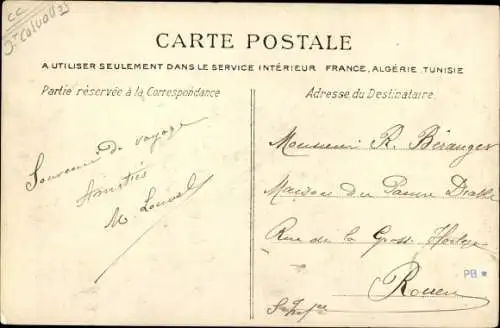 CC
CARTE POSTALE
A UTILISER SEULEMENT DANS LE SERVICE INTÉRIEUR FRANCE, ALGÉRIE, TUNISIE
Partie réservée à la Correspondance
Adresse du Destinataire.
Souvenir de voyage
Amitiés
M. Louvel
Monsieur R. Béranger
Maison du Pauvre Diable
Rue de la Grosse Horloge
Rouen
S. Infre
PB *